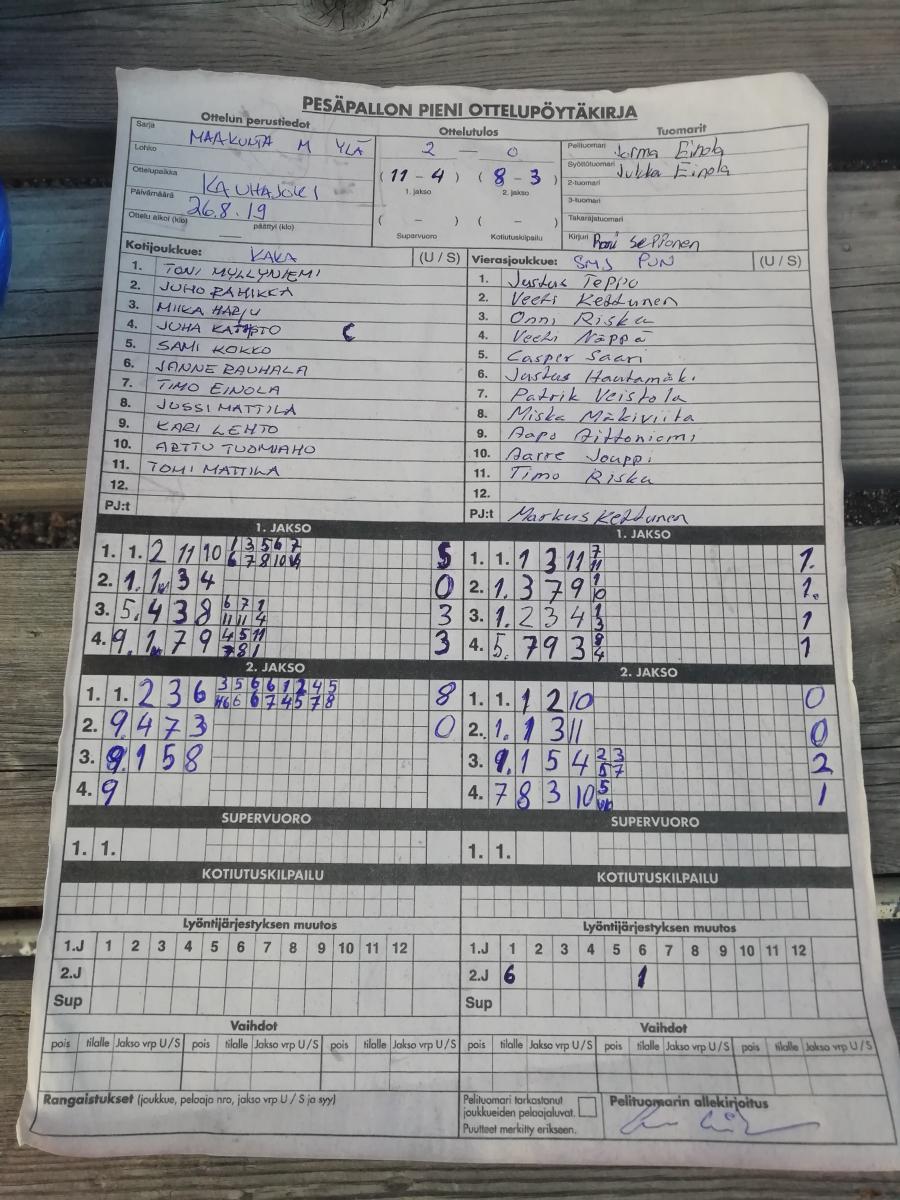 PESÄPALLON PIENI OTTELUPÖYTÄKIRJA
Ottelun perustiedot
Sarja MAAKUNTA M YLÄ
Lohko
Ottelupaikka KAUHAJOKI
Päivämäärä 26.8.19
Ottelu alkoi (klo) – päättyi (klo)
Ottelutulos
2 – 0
( 11 – 4 ) ( 8 – 3 )
1. jakso 2. jakso
( – ) ( – )
Supervuoro Kotiutuskilpailu
Tuomarit
Pelituomari Jorma Einola
Syöttötuomari Jukka Einola
2-tuomari
3-tuomari
Takarajatuomari
Kirjuri
Kotijoukkue: KAKA (U / S)
1. TONI MYLLYNIEMI
2. JUHO RAHIKKA
3. MIIKA HARJU
4. JUHA C
5. SAMI KOKKO
6. JANNE RAUHALA
7. TIMO EINOLA
8. JUSSI MATTILA
9. KARI LEHTO
10. ARTTU TUOMIAHO
11. TOMI MATTILA
12.
PJ:t
Vierasjoukkue: SMJ PUN (U / S)
1. Justus Teppo
2. Veeti Kettunen
3. Onni Riska
4. Veeti Näppä
5. Casper Saari
6. Justus Hautamäki
7. Patrik Veistola
8. Miska Mäkiviita
9. Aapo Aittoniemi
10. Aarre Jouppi
11. Timo Riska
12.
PJ:t Markus Kettunen
1. JAKSO
1. 1. 2 11 10 1 3 5 6 7 5
6 7 8 10
2. 1. 3 4 0
3. 5. 4 3 8 6 7 1 3
11 11 4
4. 9. 1. 7 9 4 5 11 3
7 8 1
1. JAKSO
1. 1. 1 3 11 7 1.
11
2. 1. 3 7 9 1 1.
3. 1. 2 3 4 1 1
3
4. 5. 7 9 3 8 1
4
2. JAKSO
1. 1. 2 3 6 3 5 6 6 1 2 4 5 8
6 6 7 4 5 7 8
2. 9. 4 7 3 0
3. 9. 1 5 8
4. 9
2. JAKSO
1. 1. 1 2 10 0
2. 1. 1 3 11 0
3. 9. 1 5 4 2 3 2
5 7
4. 7 8 3 10 5 1
SUPERVUORO
1. 1.
SUPERVUORO
1. 1.
KOTIUTUSKILPAILU
KOTIUTUSKILPAILU
Lyöntijärjestyksen muutos
1.J 1 2 3 4 5 6 7 8 9 10 11 12
2.J
Sup
Lyöntijärjestyksen muutos
1.J 1 2 3 4 5 6 7 8 9 10 11 12
2.J 6 1
Sup
Vaihdot
pois tilalle Jakso vrp U / S pois tilalle Jakso vrp U / S pois tilalle Jakso vrp U / S
Vaihdot
pois tilalle Jakso vrp U / S pois tilalle Jakso vrp U / S pois tilalle Jakso vrp U / S
Rangaistukset (joukkue, pelaaja nro, jakso vrp U / S ja syy)
Pelituomari tarkastanut
joukkueiden pelaajaluvat.
Puutteet merkitty erikseen.
Pelituomarin allekirjoitus